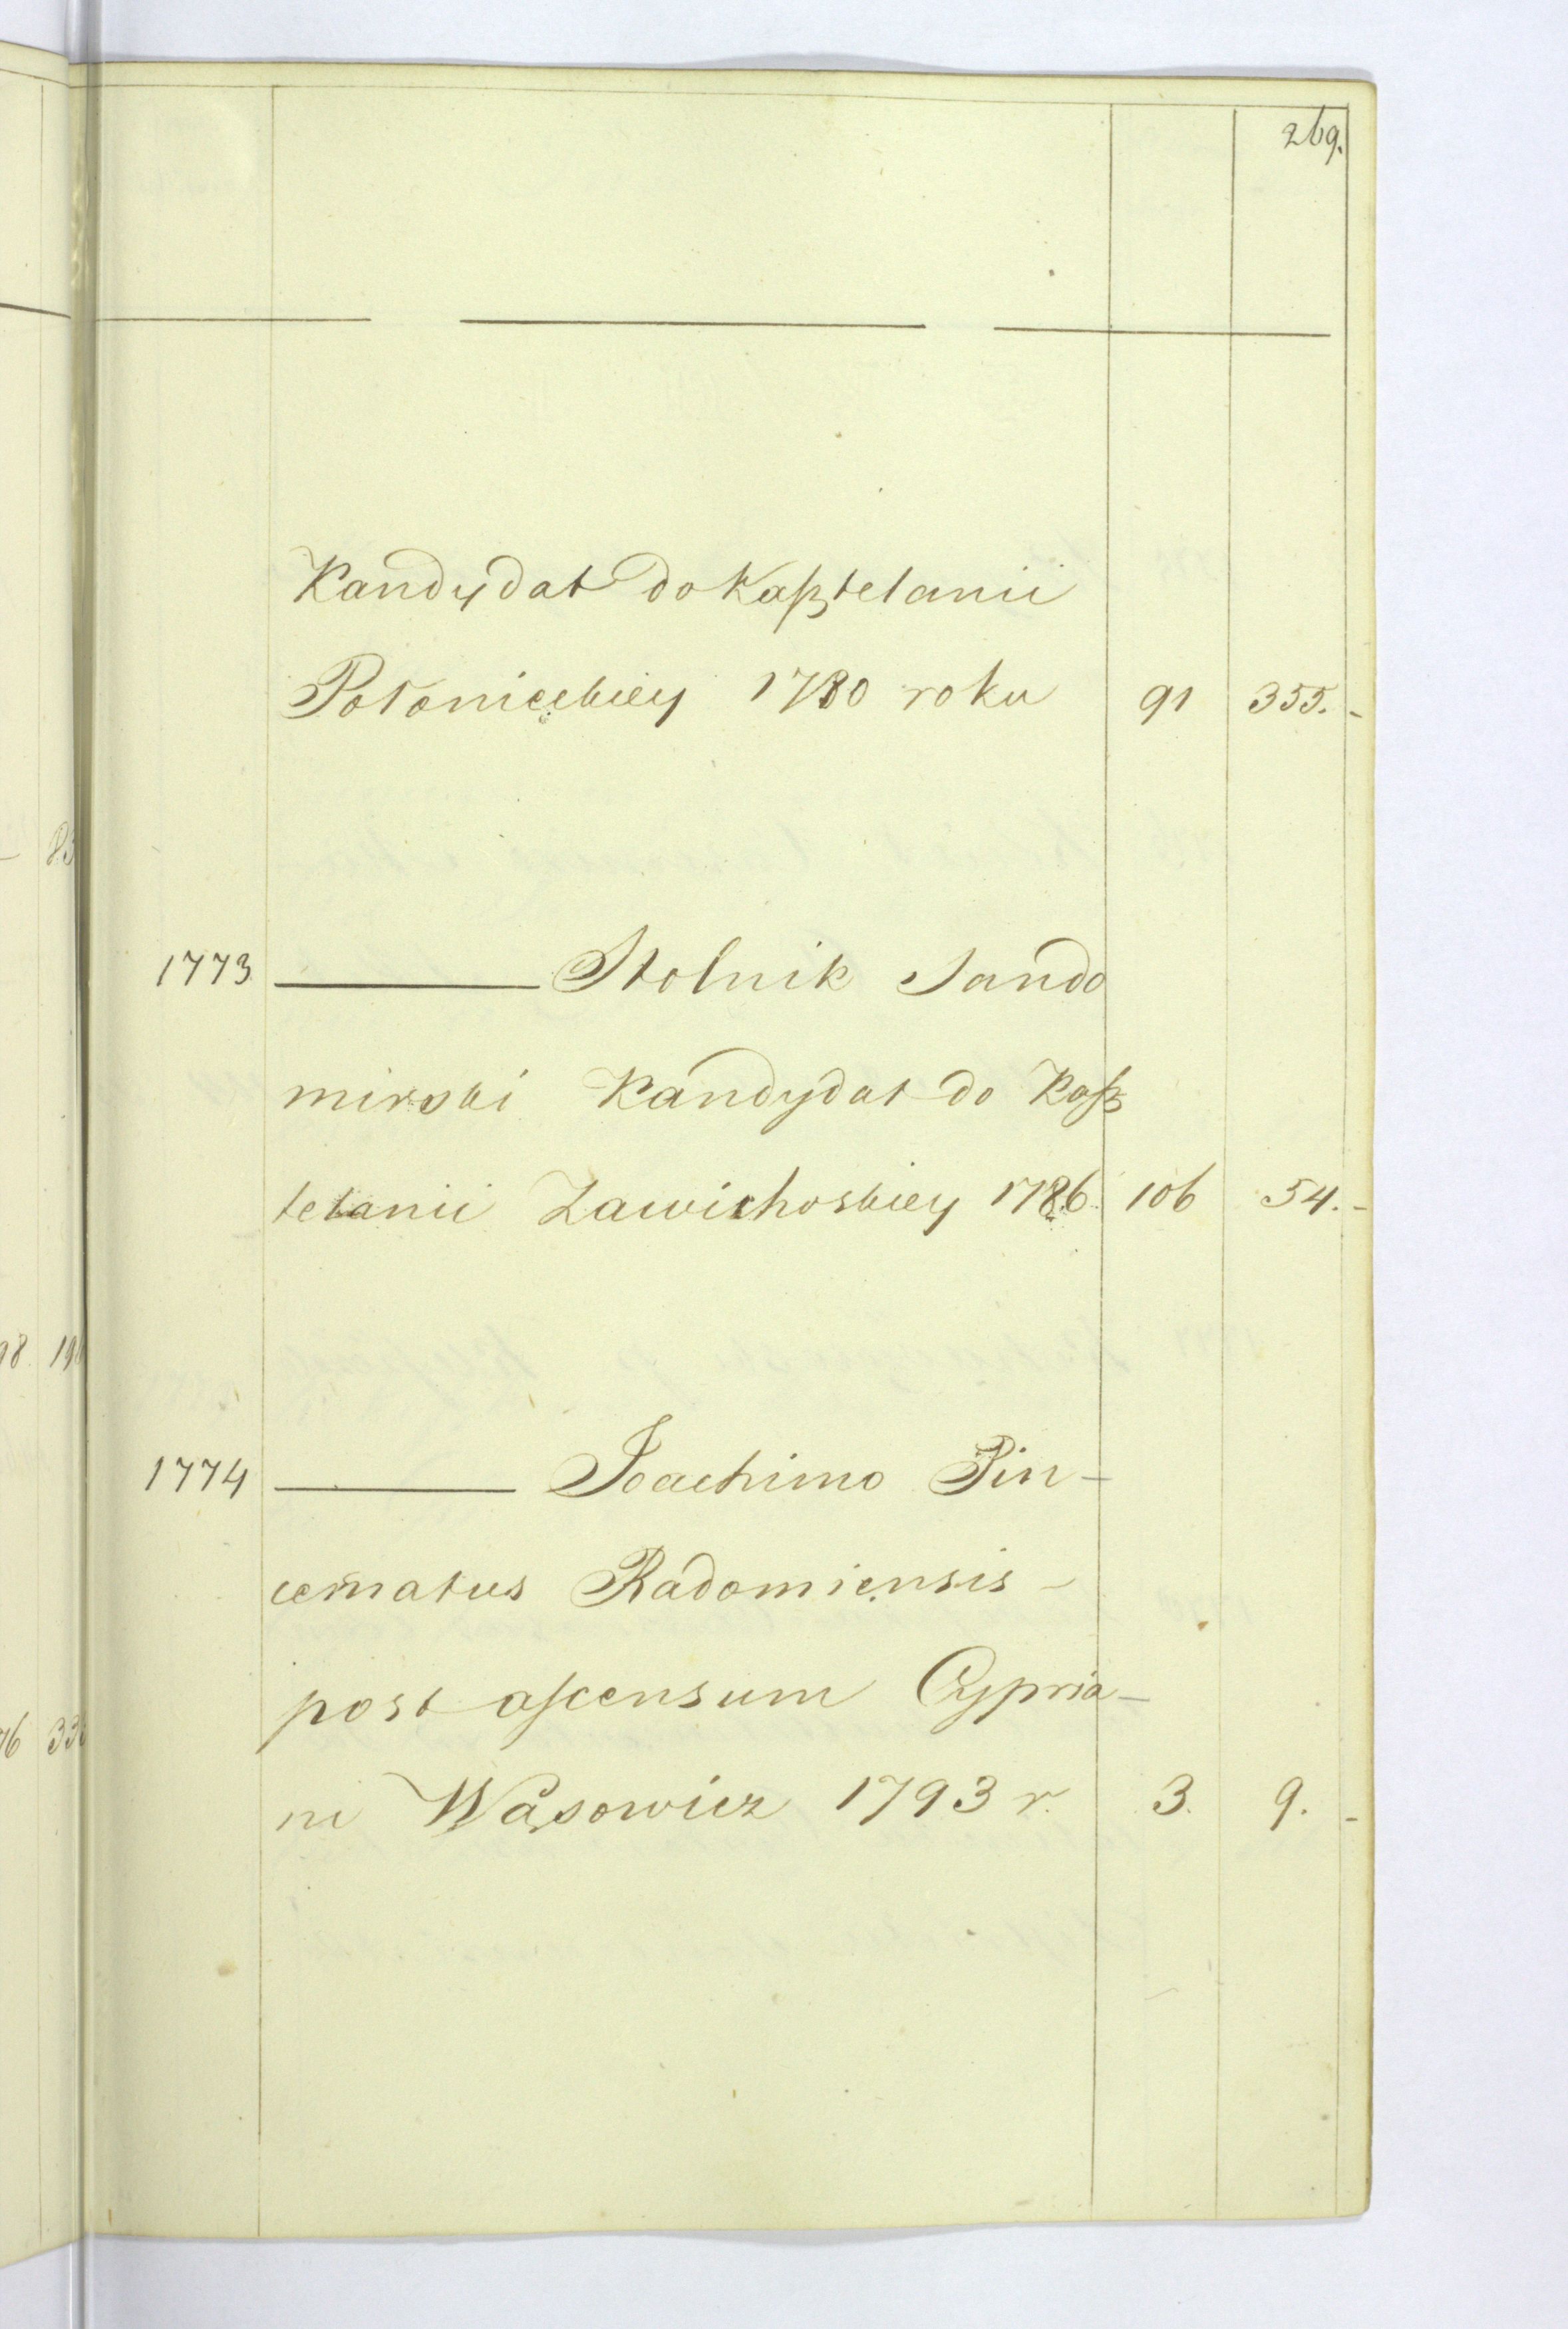 269.
Kandydat do Kasztelanii
Połonieckiey 1780 roku 91 355.-
1773 ——— Stolnik Sando
mirski Kandydat do Kasz
telanii Zawichoskiey 1786 106 54.-
1774 ——— Joachimo Pin-
cernatus Radomiensis -
post ascensum Cypria-
ni Wąsowicz 1793 r. 3. 9. -